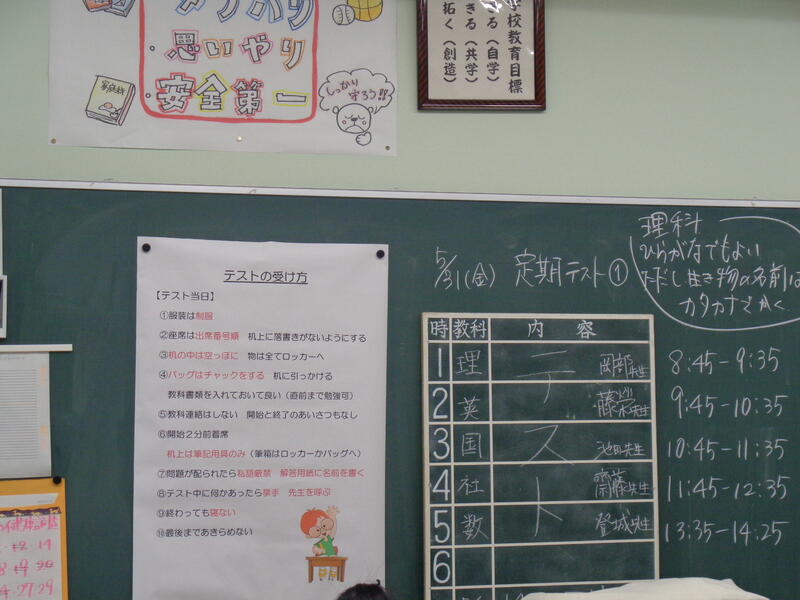 思いやり
安全第一
しっかり
守ろう!!
学校教育目標
る（自学）
きる（共学）
拓く（創造）
テストの受け方
【テスト当日】
①服装は制服
②座席は出席番号順 机上に落書きがないようにする
③机の中は空っぽに 物は全てロッカーへ
④バッグはチャックをする 机に引っかける
教科書類を入れておいて良い（直前まで勉強可）
⑤教科連絡はしない 開始と終了のあいさつもなし
⑥開始２分前着席
机上は筆記用具のみ（筆箱はロッカーかバッグへ）
⑦問題が配られたら私語厳禁 解答用紙に名前を書く
⑧テスト中に何かあったら挙手 先生を呼ぶ
⑨終わっても寝ない
⑩最後まであきらめない
5/31(金) 定期テスト①
理科
ひらがなでもよい
ただし生き物の名前は
カタカナでかく
時 教科 内容
1 理 テ 岡部先生 8:45-9:35
2 英 先生 9:45-10:35
3 国 ス 池田先生 10:45-11:35
4 社 齋藤先生 11:45-12:35
5 数 ト 登城先生 13:35-14:25
6